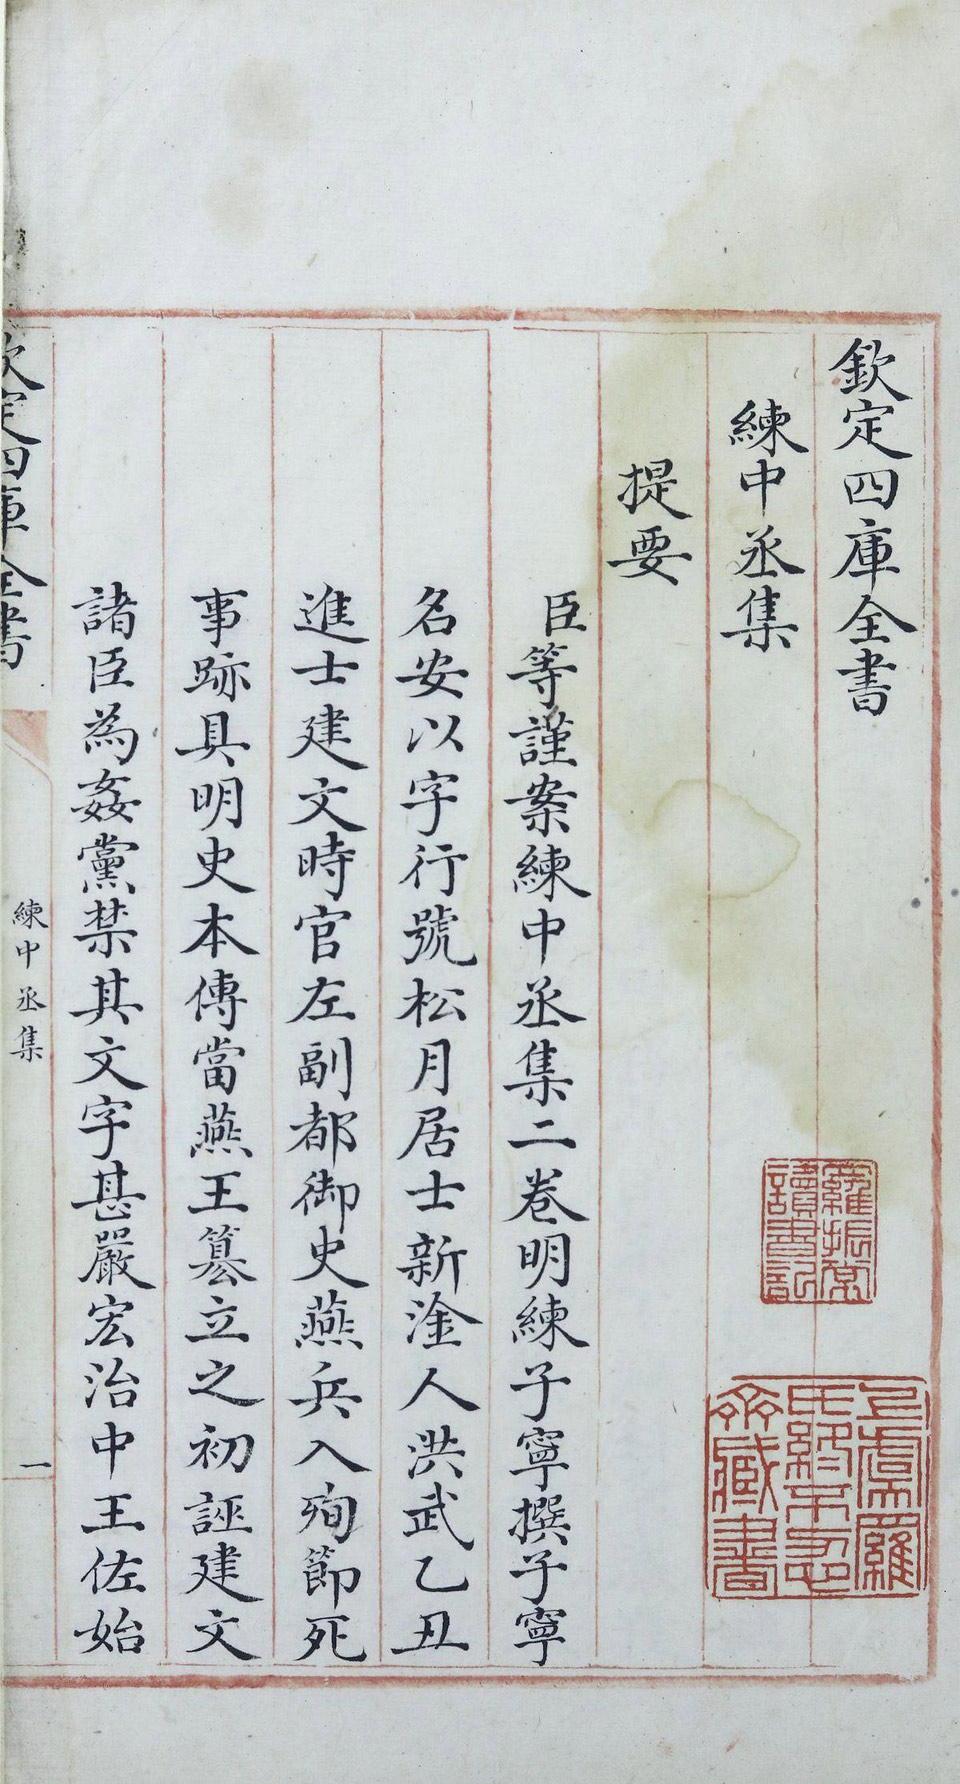 欽定四庫全書
練中丞集
提要
臣等謹案練中丞集二卷明練子寧撰子寧
名安以字行號松月居士新淦人洪武乙丑
進士建文時官左副都御史燕兵入殉節死
事跡具明史本傳當燕王篡立之初誣建文
諸臣為姦黨禁其文字甚嚴宏治中王佐始
欽定四庫全書
練中丞集
一
羅振常
讀書記
上虞羅
藏書